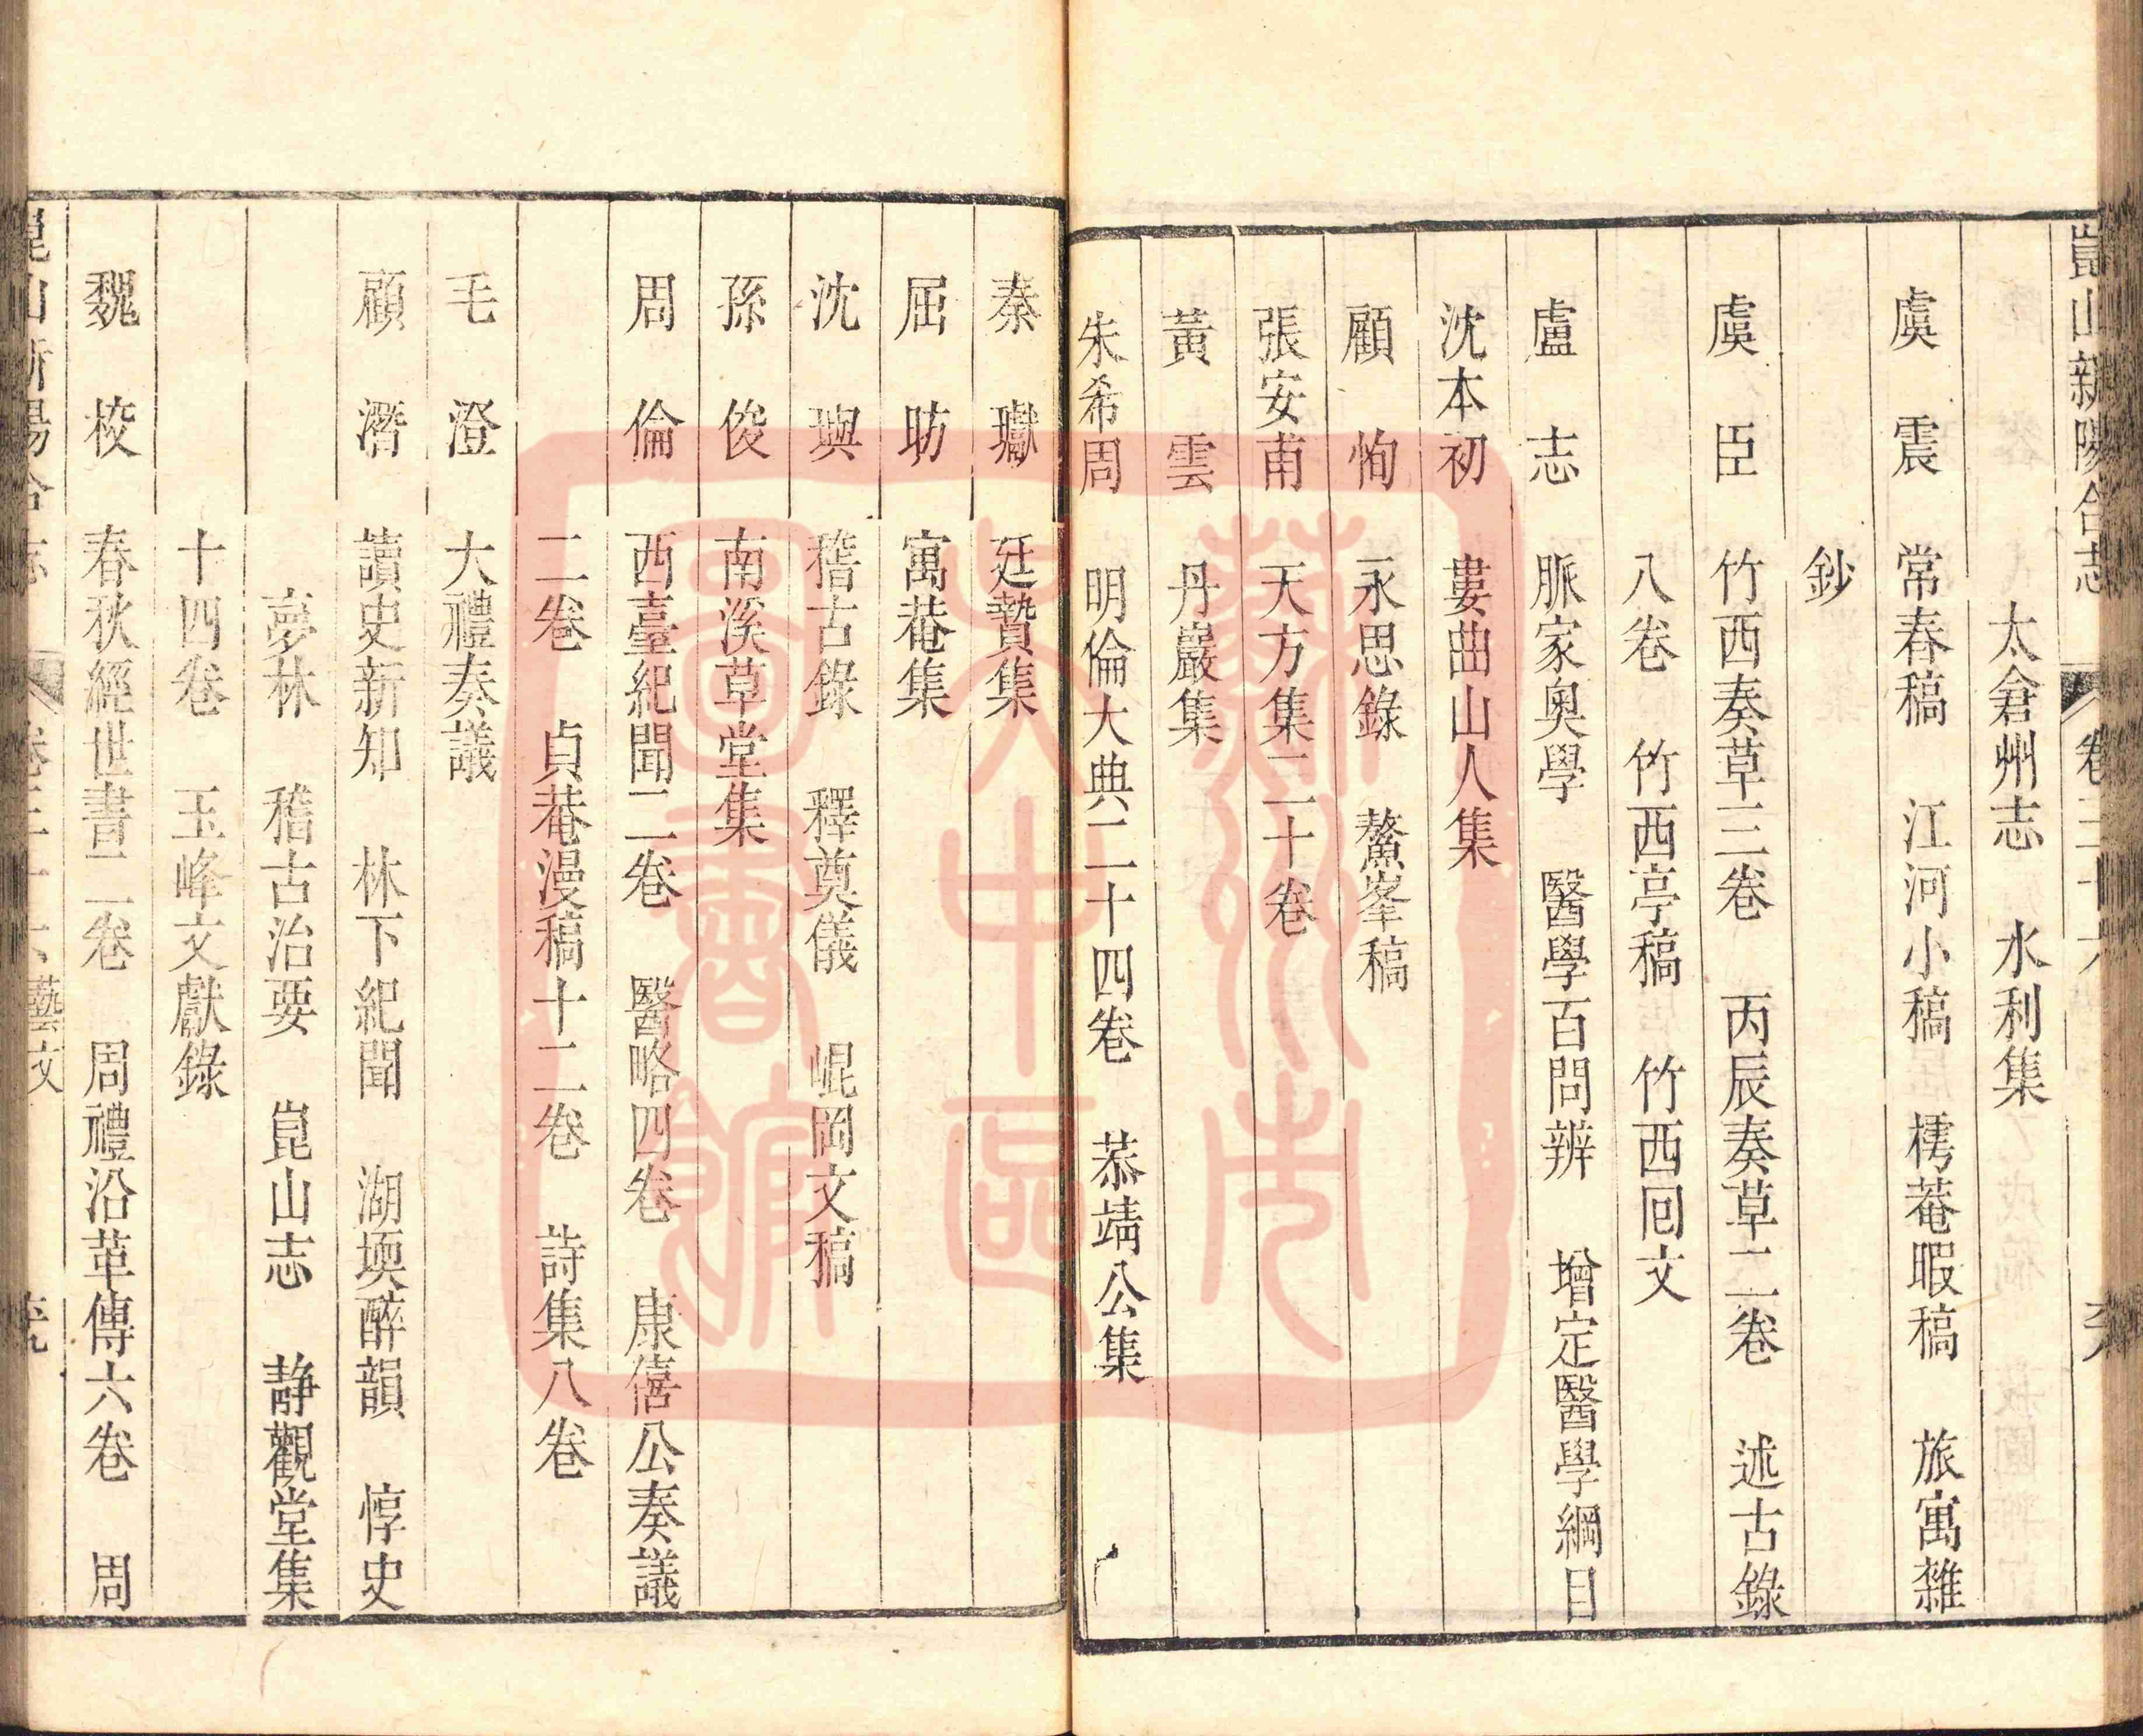 崑山新陽合志
太倉州志 水利集
虞震 常春稿 江河小稿 樗菴暇稿 旅寓雜
鈔
虞臣 竹西奏草三卷 丙辰奏草二卷 述古錄
八卷 竹西亭稿 竹西回文
盧志 脈家奧學 醫學百問辨 增定醫學綱目
沈本初 婁曲山人集
顧恂 永思錄 鰲峯稿
張安甫 天方集二十卷
黃雲 丹巖集
朱希周 明倫大典二十四卷 恭靖公集
秦瓛 廷贄集
屈昉 寓菴集
沈璵 稽古錄 釋奠儀 崐岡文稿
孫俊 南溪草堂集
周倫 西臺紀聞二卷 醫略四卷 康僖公奏議
二卷 貞菴漫稿十二卷 詩集八卷
毛澄 大禮奏議
顧潛 讀史新知 林下紀聞 湖堧醉韻 惇史
夢林 稽古治要 崑山志 靜觀堂集
十四卷 玉峰文獻錄
魏校 春秋經世書二卷 周禮沿革傳六卷 周
藝文
蘇州市吳中區圖書館